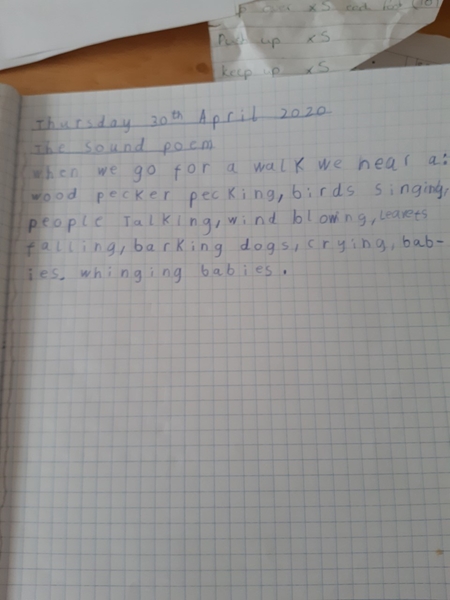 x5 and
Push up x5
keep up x5
Thursday 30th April 2020
The Sound poem
when we go for a walk we hear a:
wood pecker pecking, birds singing,
people Talking, wind blowing, leaves
falling, barking dogs, crying, bab-
ies. whinging babies.